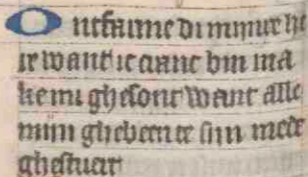 Ontfarme di mijnre he
re want ic cranc bin ma
ke mi ghesont want alle
mijn ghebeente sijn mede
ghestuert